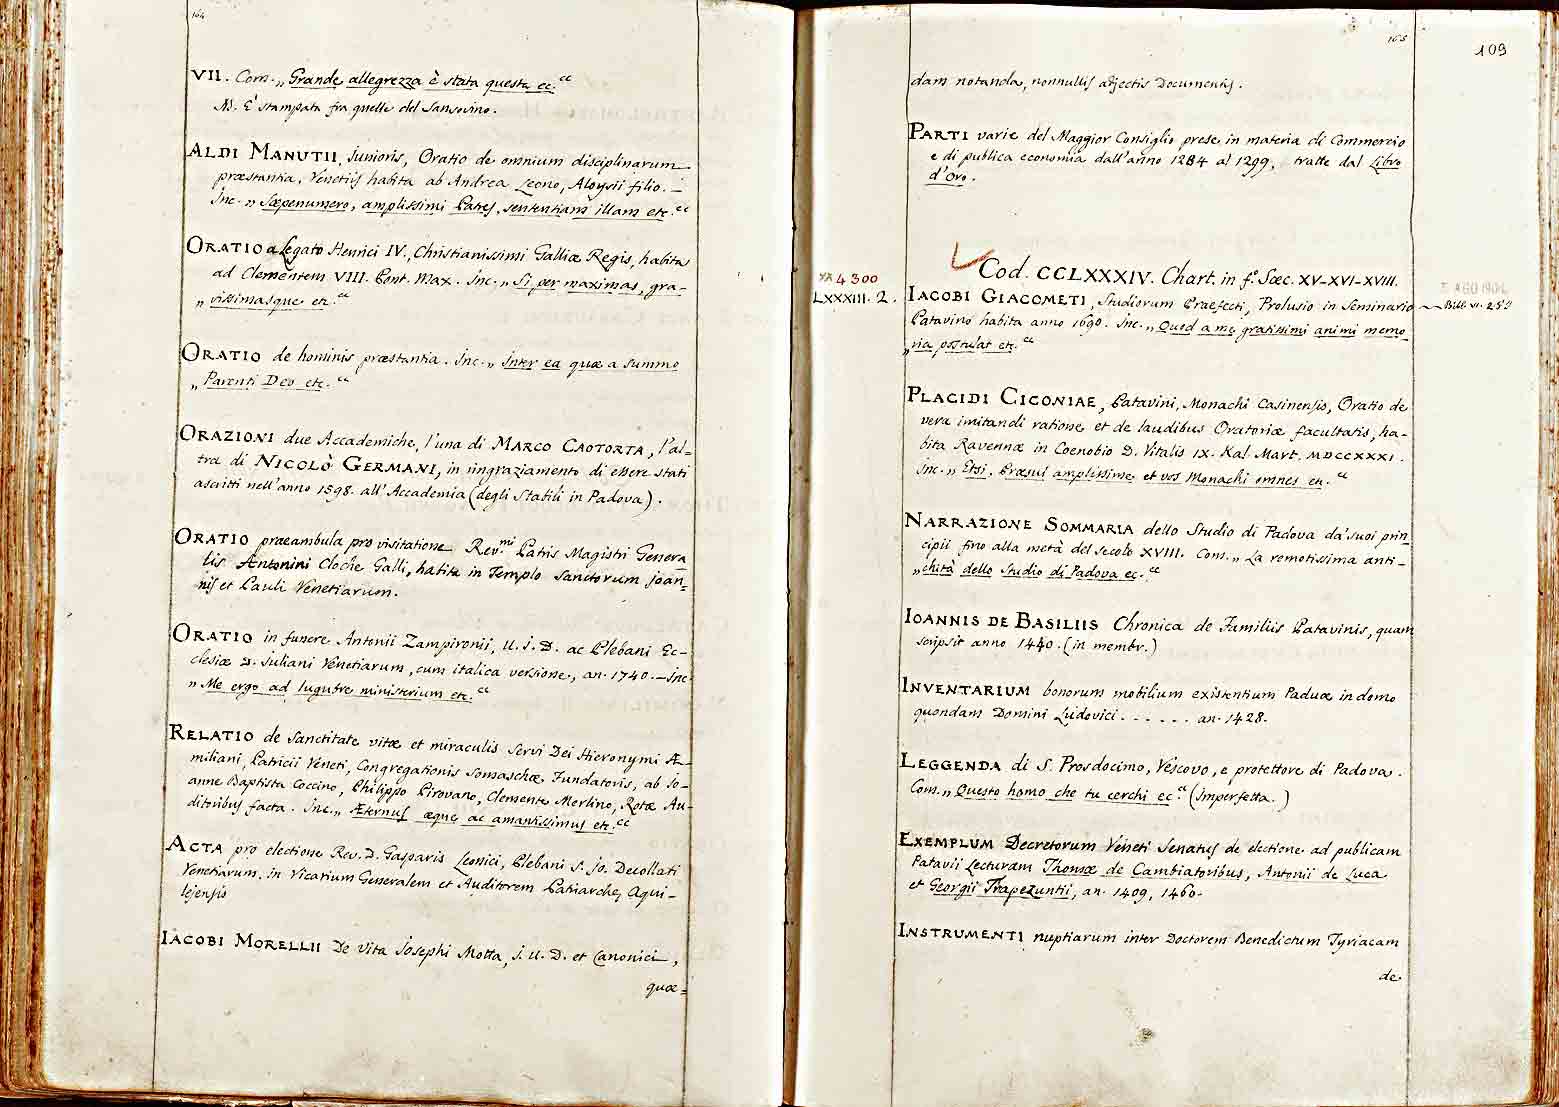 164
VII. Com. „ Grande allegrezza è stata questa ec. “
N. È stampata fra quelle del Sansovino.
ALDI MANUTII, Junioris, Oratio de omnium disciplinarum
præstantia, Venetiis habita ab Andrea Leono, Aloysii filio. –
Inc. „ Sæpenumero, amplissimi Patres, sententiam illam etc. “
ORATIO a Legato Henrici IV., Christianissimi Galliæ Regis, habita
ad Clementem VIII. Pont. Max. Inc. „ Si per maximas, gra-
„ vissimasque etc. “
ORATIO de hominis præstantia. Inc. „ Inter ea quæ a summo
„ Parenti Deo etc. “
ORAZIONI due Accademiche, l'una di MARCO CAOTORTA, l'al-
tra di NICOLÒ GERMANI, in ringraziamento di essere stati
ascritti nell'anno 1598. all'Accademia (degli Stabili in Padova).
ORATIO praeambula pro visitatione Rev.mi Patris Magistri Genera
lis Antonini Cloche Galli, habita in Templo Sanctorum Joan-
nis et Pauli Venetiarum.
ORATIO in funere Antonii Zampironii, U. J. D. ac Plebani Ec-
clesiæ D. Juliani Venetiarum, cum italica versione, an. 1740. – Inc
„ Me ergo ad lugubre ministerium etc. “
RELATIO de Sanctitate vitæ et miraculis Servi Dei Hieronymi Æ-
miliani, Patricii Veneti, Congregationis Somaschæ Fundatoris, ab Jo-
anne Baptista Coccino, Philippo Pirovano, Clemente Merlino, Rotæ Au-
ditoribus facta. Inc. „ Æternus æque ac amantissimus etc. “
ACTA pro electione Rev. D. Gasparis Leonici, Plebani S. Jo. Decollati
Venetiarum, in Vicarium Generalem et Auditorem Patriarchę Aqui-
lejensis
IACOBI MORELLII De Vita Josephi Motta, J. U. D. et Canonici,
quæ=
165
109
dam notanda, nonnullis adjectis Documentis.
PARTI varie del Maggior Consiglio prese in materia di Commercio
e di publica economia dall'anno 1284 al 1299, tratte dal Libro
d'Oro.
4300
LXXXIII. 2.
Cod. CCLXXXIV. Chart. in f.o Sæc. XV–XVI–XVIII.
IACOBI GIACOMETI, Studiorum Praefecti, Prolusio in Seminario
Patavino habita anno 1690. Inc. „ Quod a me gratissimi animi memo
„ ria postulat etc. “
PLACIDI CICONIAE, Patavini, Monachi Casinensis, Oratio de
vera imitandi ratione et de laudibus Oratoriæ facultatis, ha-
bita Ravennæ in Coenobio D. Vitalis IX. Kal. Mart. MDCCXXXI.
Inc. „ Etsi, Præsul amplissime, et vos Monachi omnes etc. “
NARRAZIONE SOMMARIA dello Studio di Padova da' suoi prin-
cipii fino alla metà del secolo XVIII. Com. „ La remotissima anti-
„ chità dello Studio di Padova ec. “
IOANNIS DE BASILIIS Chronica de Familiis Patavinis, quam
scripsit anno 1440. (in membr.)
INVENTARIUM bonorum mobilium existentium Paduæ in domo
quondam Domini Ludovici . . . . . . an. 1428.
LEGGENDA di S. Prosdocimo, Vescovo, e protettore di Padova.
Com. „ Questo homo che tu cerchi ec. “ (Imperfetta.)
EXEMPLUM Decretorum Veneti Senatus de electione ad publicam
Patavii Lecturam Thomæ de Cambiatoribus, Antonii de Luca
et Georgii Trapezuntii, an. 1409, 1460.
INSTRUMENTI nuptiarum inter Doctorem Benedictum Tyriacam
de